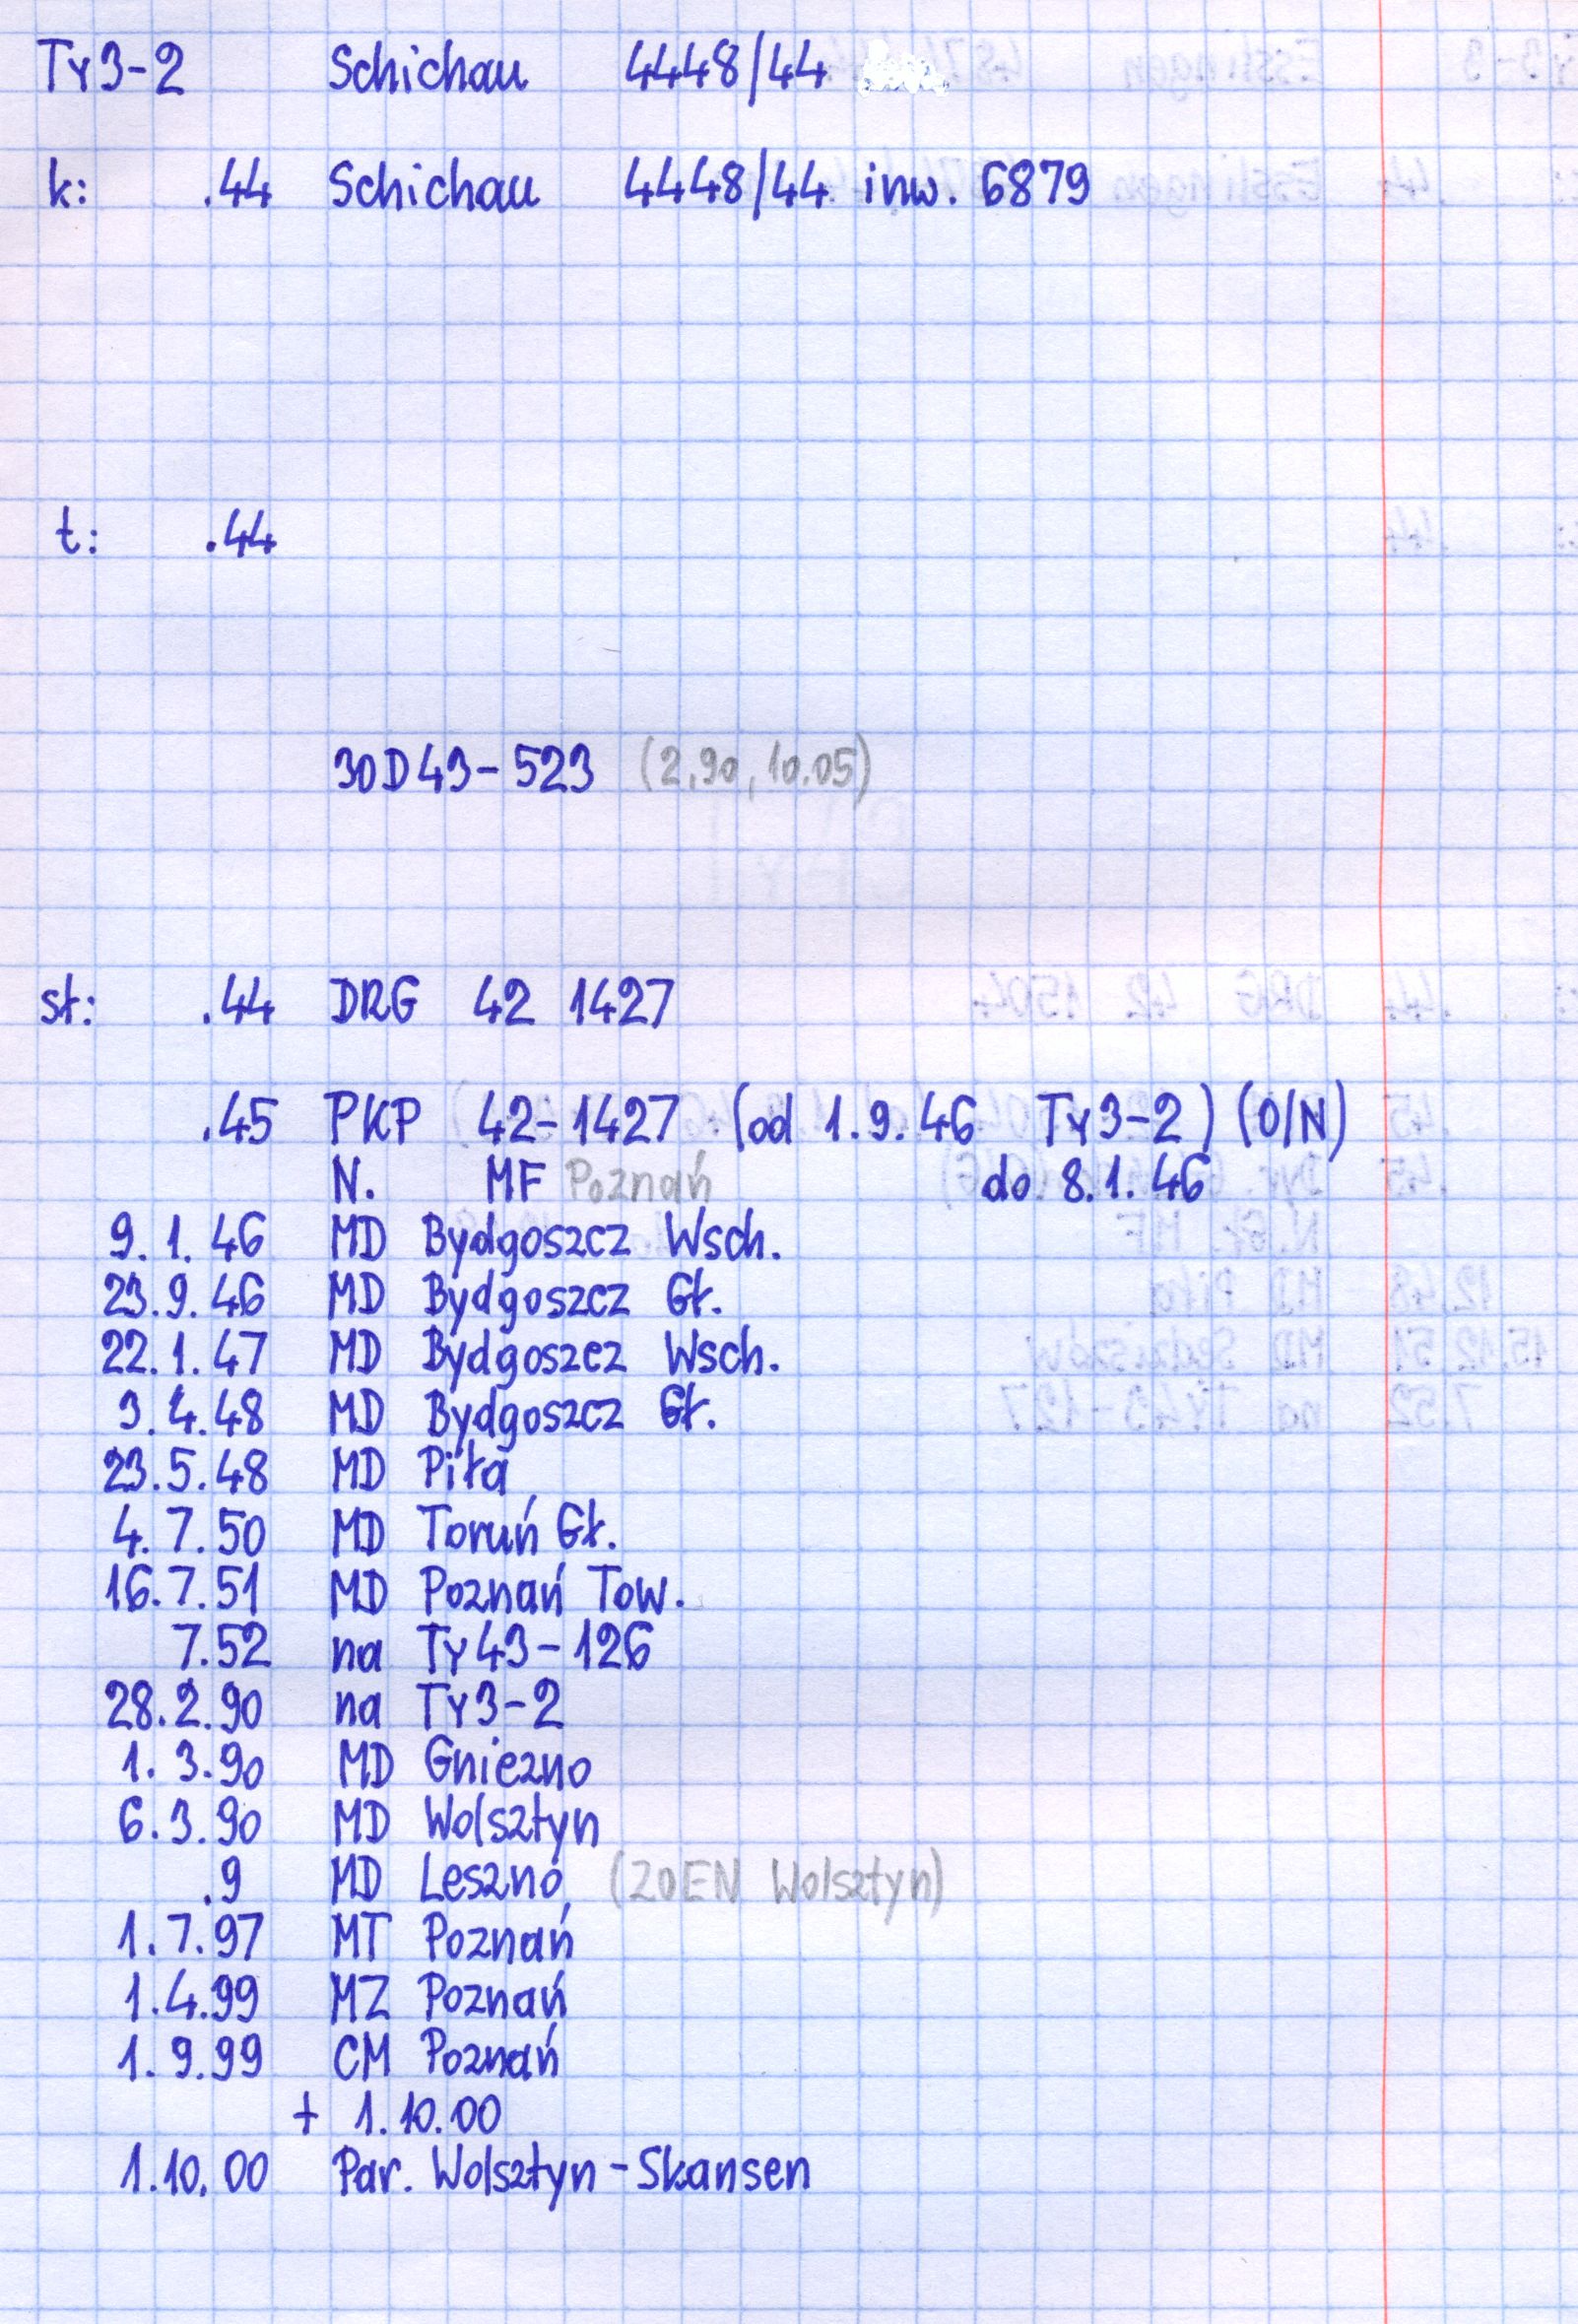 Ty3-2 Schichau 4448/44
k: .44 Schichau 4448/44 inw. 6879
t: .44
30D43-523 (2.90, 10.05)
st: .44 DRG 42 1427
.45 PKP 42-1427 (od 1.9.46 Ty3-2) (O/N)
N. MF Poznań do 8.1.46
9.1.46 MD Bydgoszcz Wsch.
23.9.46 MD Bydgoszcz Gł.
22.1.47 MD Bydgoszcz Wsch.
3.4.48 MD Bydgoszcz Gł.
23.5.48 MD Piła
4.7.50 MD Toruń Gł.
16.7.51 MD Poznań Tow.
7.52 na Ty43-126
28.2.90 na Ty3-2
1.3.90 MD Gniezno
6.3.90 MD Wolsztyn
.9 MD Leszno (ZOEN Wolsztyn)
1.7.97 MT Poznań
1.4.99 MZ Poznań
1.9.99 CM Poznań
+ 1.10.00
1.10.00 Par. Wolsztyn-Skansen